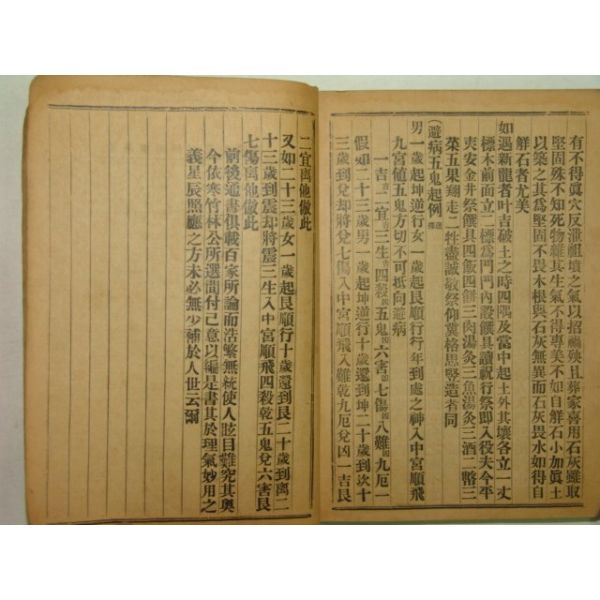 有不得眞穴反泄祖墳之氣以招禍殃且葬家喜用石灰雖取
堅固殊不知死物雜其生氣不得專美不如自鮮石小加眞土
以築之其爲堅固不畏木根與石灰無異而石灰畏水如得自
鮮石者尤美
如遇新龍者叶吉破土之時四隅及當中起土外其壙各立一丈
標木前面立二標爲門門內設饌具讀祝行祭即入役夫令平
夾安金井祭饌具四飯四餠三肉湯灸三魚湯灸三酒二幣三
菜五果翔走二牲盡誠敬祭仰冀格黑竪造者同
(避病五鬼起例)
男一歲起坤逆行女一歲起艮順行行年到處之神入中宮順飛
九宮値五鬼方切不可抵向避病
一吉 二宜 三生 四殺 五鬼 六害 七傷 八難 九厄一
假如二十三歲男一歲起坤逆行十歲還到坤二十歲到坎十
三歲到兌却將兌七傷入中八難乾九厄兌凶一吉艮
二宜离他倣此
又如二十三歲女一歲起艮順行十歲還到艮二十歲到离二
十三歲到震却將震三生入中宮順飛四殺乾五鬼兌六害艮
七傷离他倣此
前後通書俱載百家所論而浩繁無統使人眩目難究其奧
今依寒竹林公所選間付己意以編是書其於理氣妙用之
義星辰照臨之方未必無少補於人世云爾